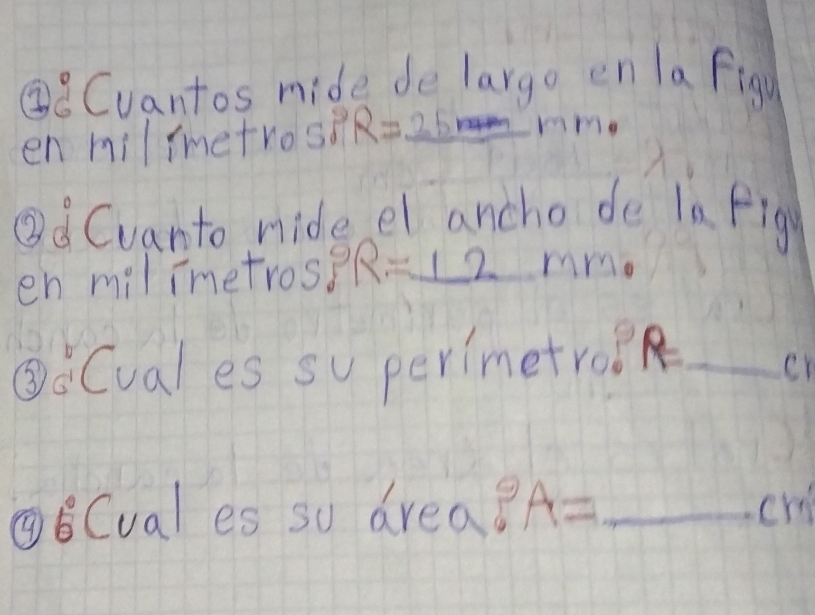 ① ¿Cuantos mide de largo en la Figu
en milímetros? R= 25 mm.
② ¿Cuanto mide el ancho de la Figu
en milímetros? R= 12 mm.
③ ¿Cual es su perímetro? R= ____ cm
④ ¿Cual es su área? A= ____ cm